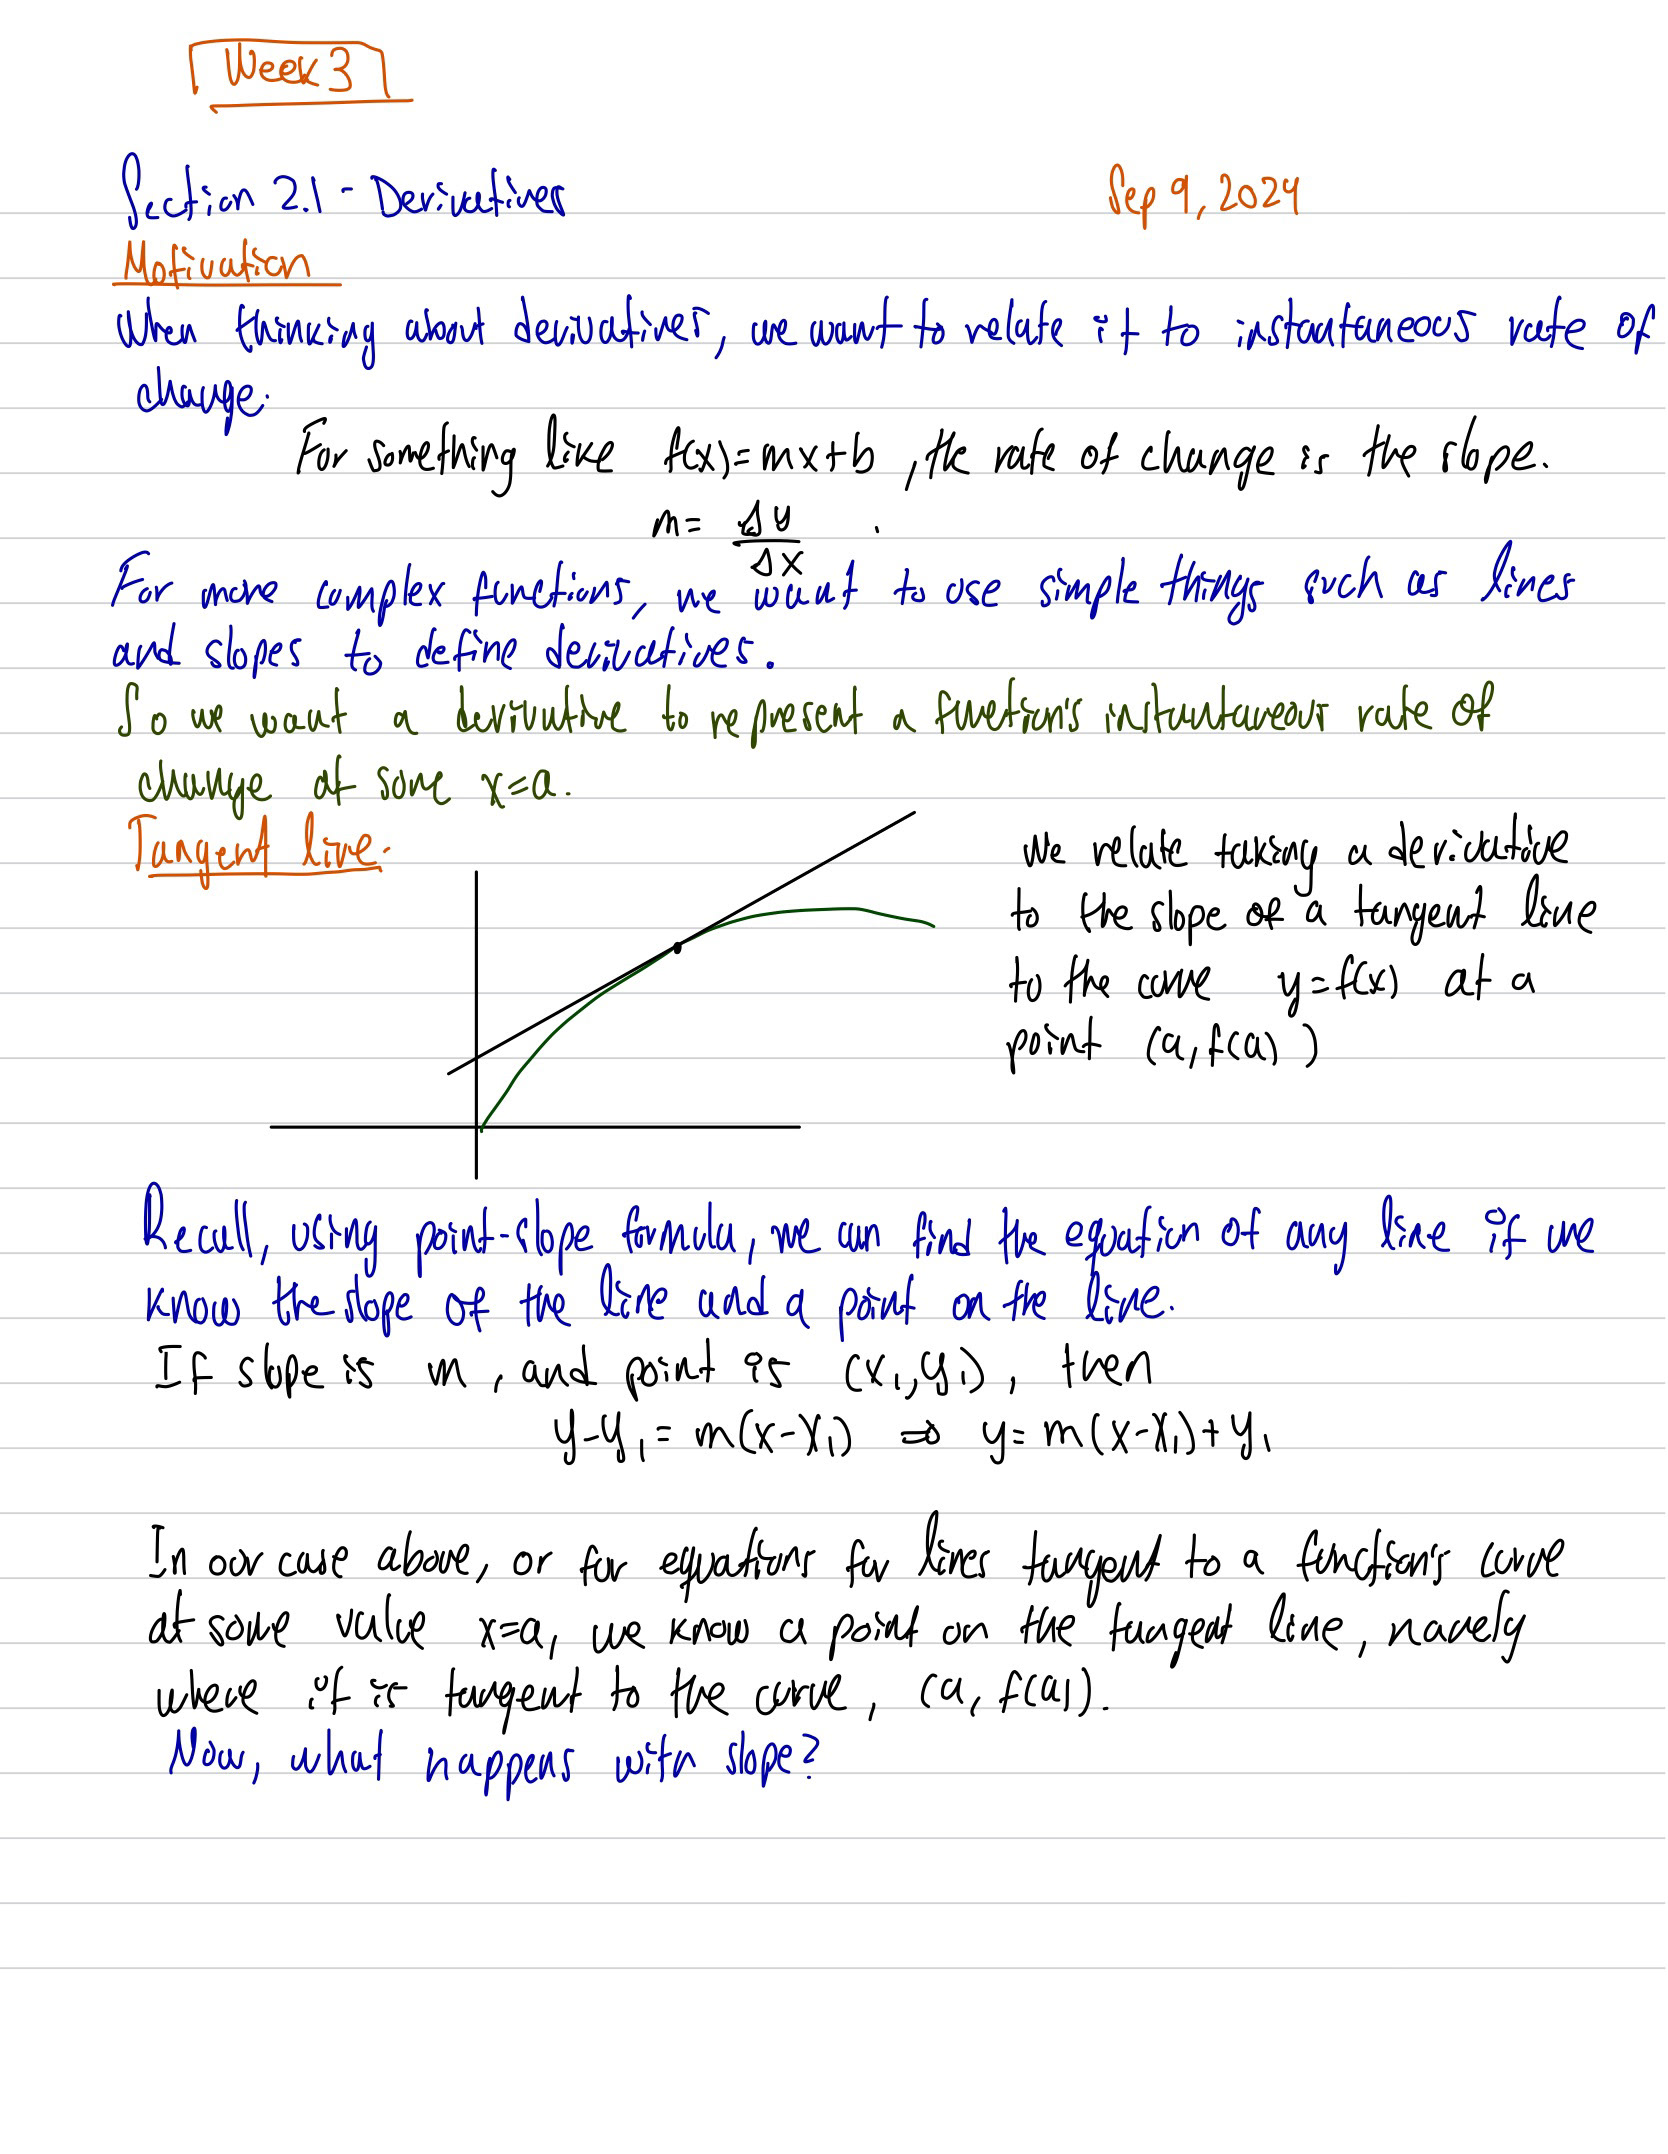 Week 3
Section 2.1 - Derivatives
Sep 9, 2024
Motivation
When thinking about derivatives, we want to relate it to instantaneous rate of
change.
For something like f(x)=mx+b, the rate of change is the slope.
m= Δy/Δx .
For more complex functions, we want to use simple things such as lines
and slopes to define derivatives.
So we want a derivative to represent a function's instantaneous rate of
change at some x=a.
Tangent line.
We relate taking a derivative
to the slope of a tangent line
to the curve y=f(x) at a
point (a, f(a))
Recall, using point-slope formula, we can find the equation of any line if we
know the slope of the line and a point on the line.
If slope is m, and point is (x₁,y₁), then
y-y₁=m(x-x₁) ⇒ y=m(x-x₁)+y₁
In our case above, or for equations for lines tangent to a function's curve
at some value x=a, we know a point on the tangent line, namely
where it is tangent to the curve, (a, f(a)).
Now, what happens with slope?